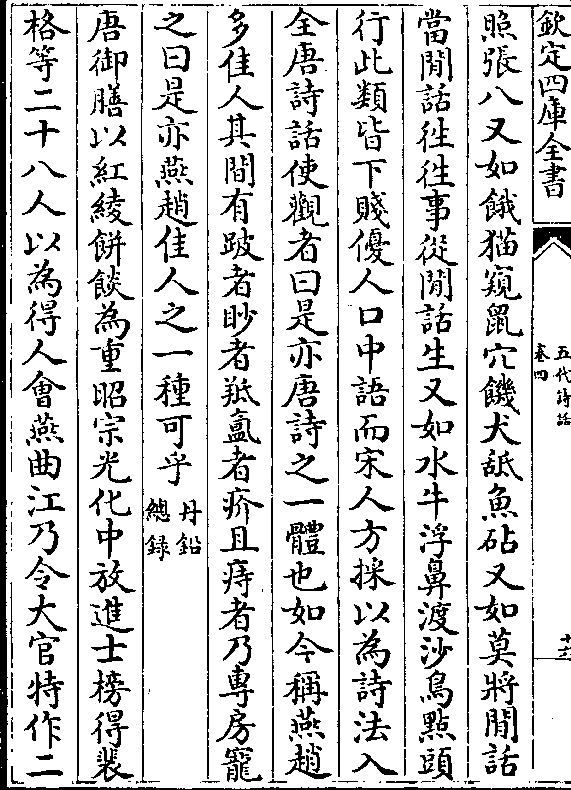 欽定四庫全書
五代詩話
卷四
照張八又如餓猫窺鼠穴饑犬䑛魚砧又如莫將閒話
當閒話徃徃事從閒話生又如水牛浮鼻渡沙鳥點頭
行此類皆下賤優人口中語而宋人方採以為詩法入
全唐詩話使觀者曰是亦唐詩之一體也如今稱燕趙
多佳人其間有跛者眇者羝氲者疥且痔者乃專房寵
之曰是亦燕趙佳人之一種可乎
丹鉛
總録
唐御膳以紅綾餅餤為重昭宗光化中放進士榜得裴
格等二十八人以為得人會燕曲江乃令大官特作二